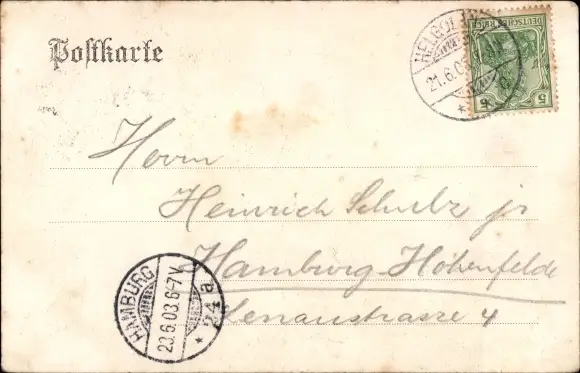 Postkarte
HELGOLAND
21.6.03
DEUTSCHES REICH
5 5
Herrn
Heinrich Schulz jr
Hamburg-Hohenfelde
Lenaustrasse 4
HAMBURG
23.6.03.6-7V.
* 24 a